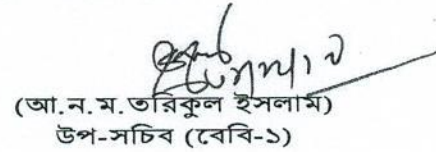 (আ.ন.ম. তরিকুল ইসলাম)
উপ-সচিব (বেবি-১)